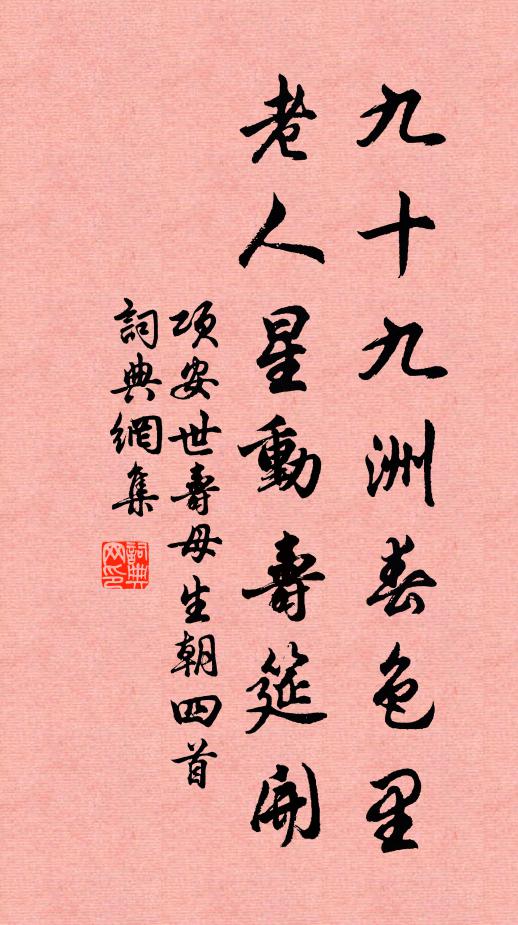 九十九洲春色里
老人星動壽筵開
項安世壽母生朝四首
詞典網集
詞典網印